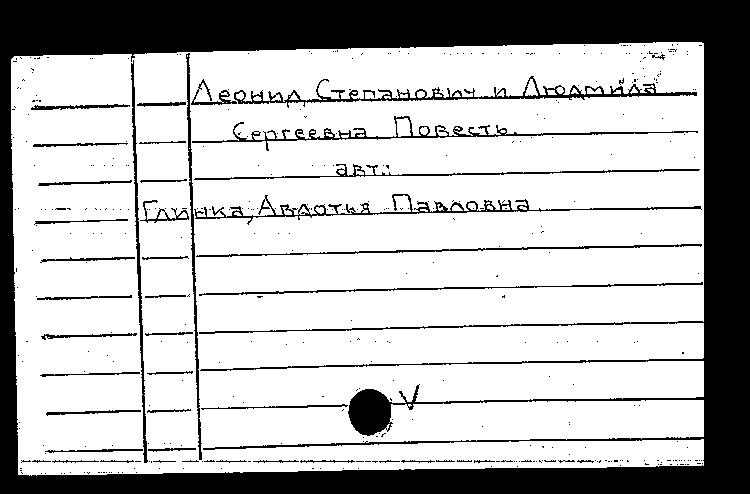 Леонид Степанович и Людмила
Сергеевна. Повесть.
авт.:
Глинка, Авдотья Павловна.
V